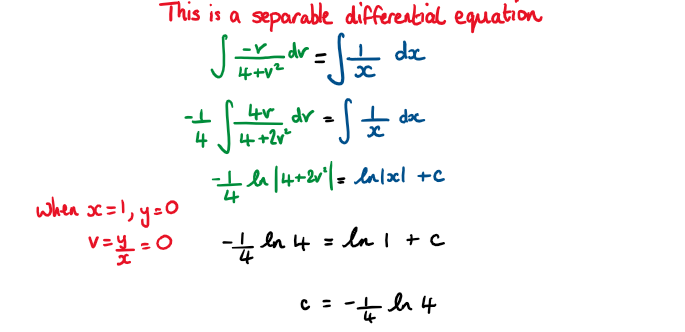 This is a separable differential equation
∫ -v/(4+v²) dv = ∫ 1/x dx
-1/4 ∫ 4v/(4+2v²) dv = ∫ 1/x dx
-1/4 ln|4+2v²| = ln|x| + c
when x=1, y=0
v = y/x = 0
-1/4 ln 4 = ln 1 + c
c = -1/4 ln 4